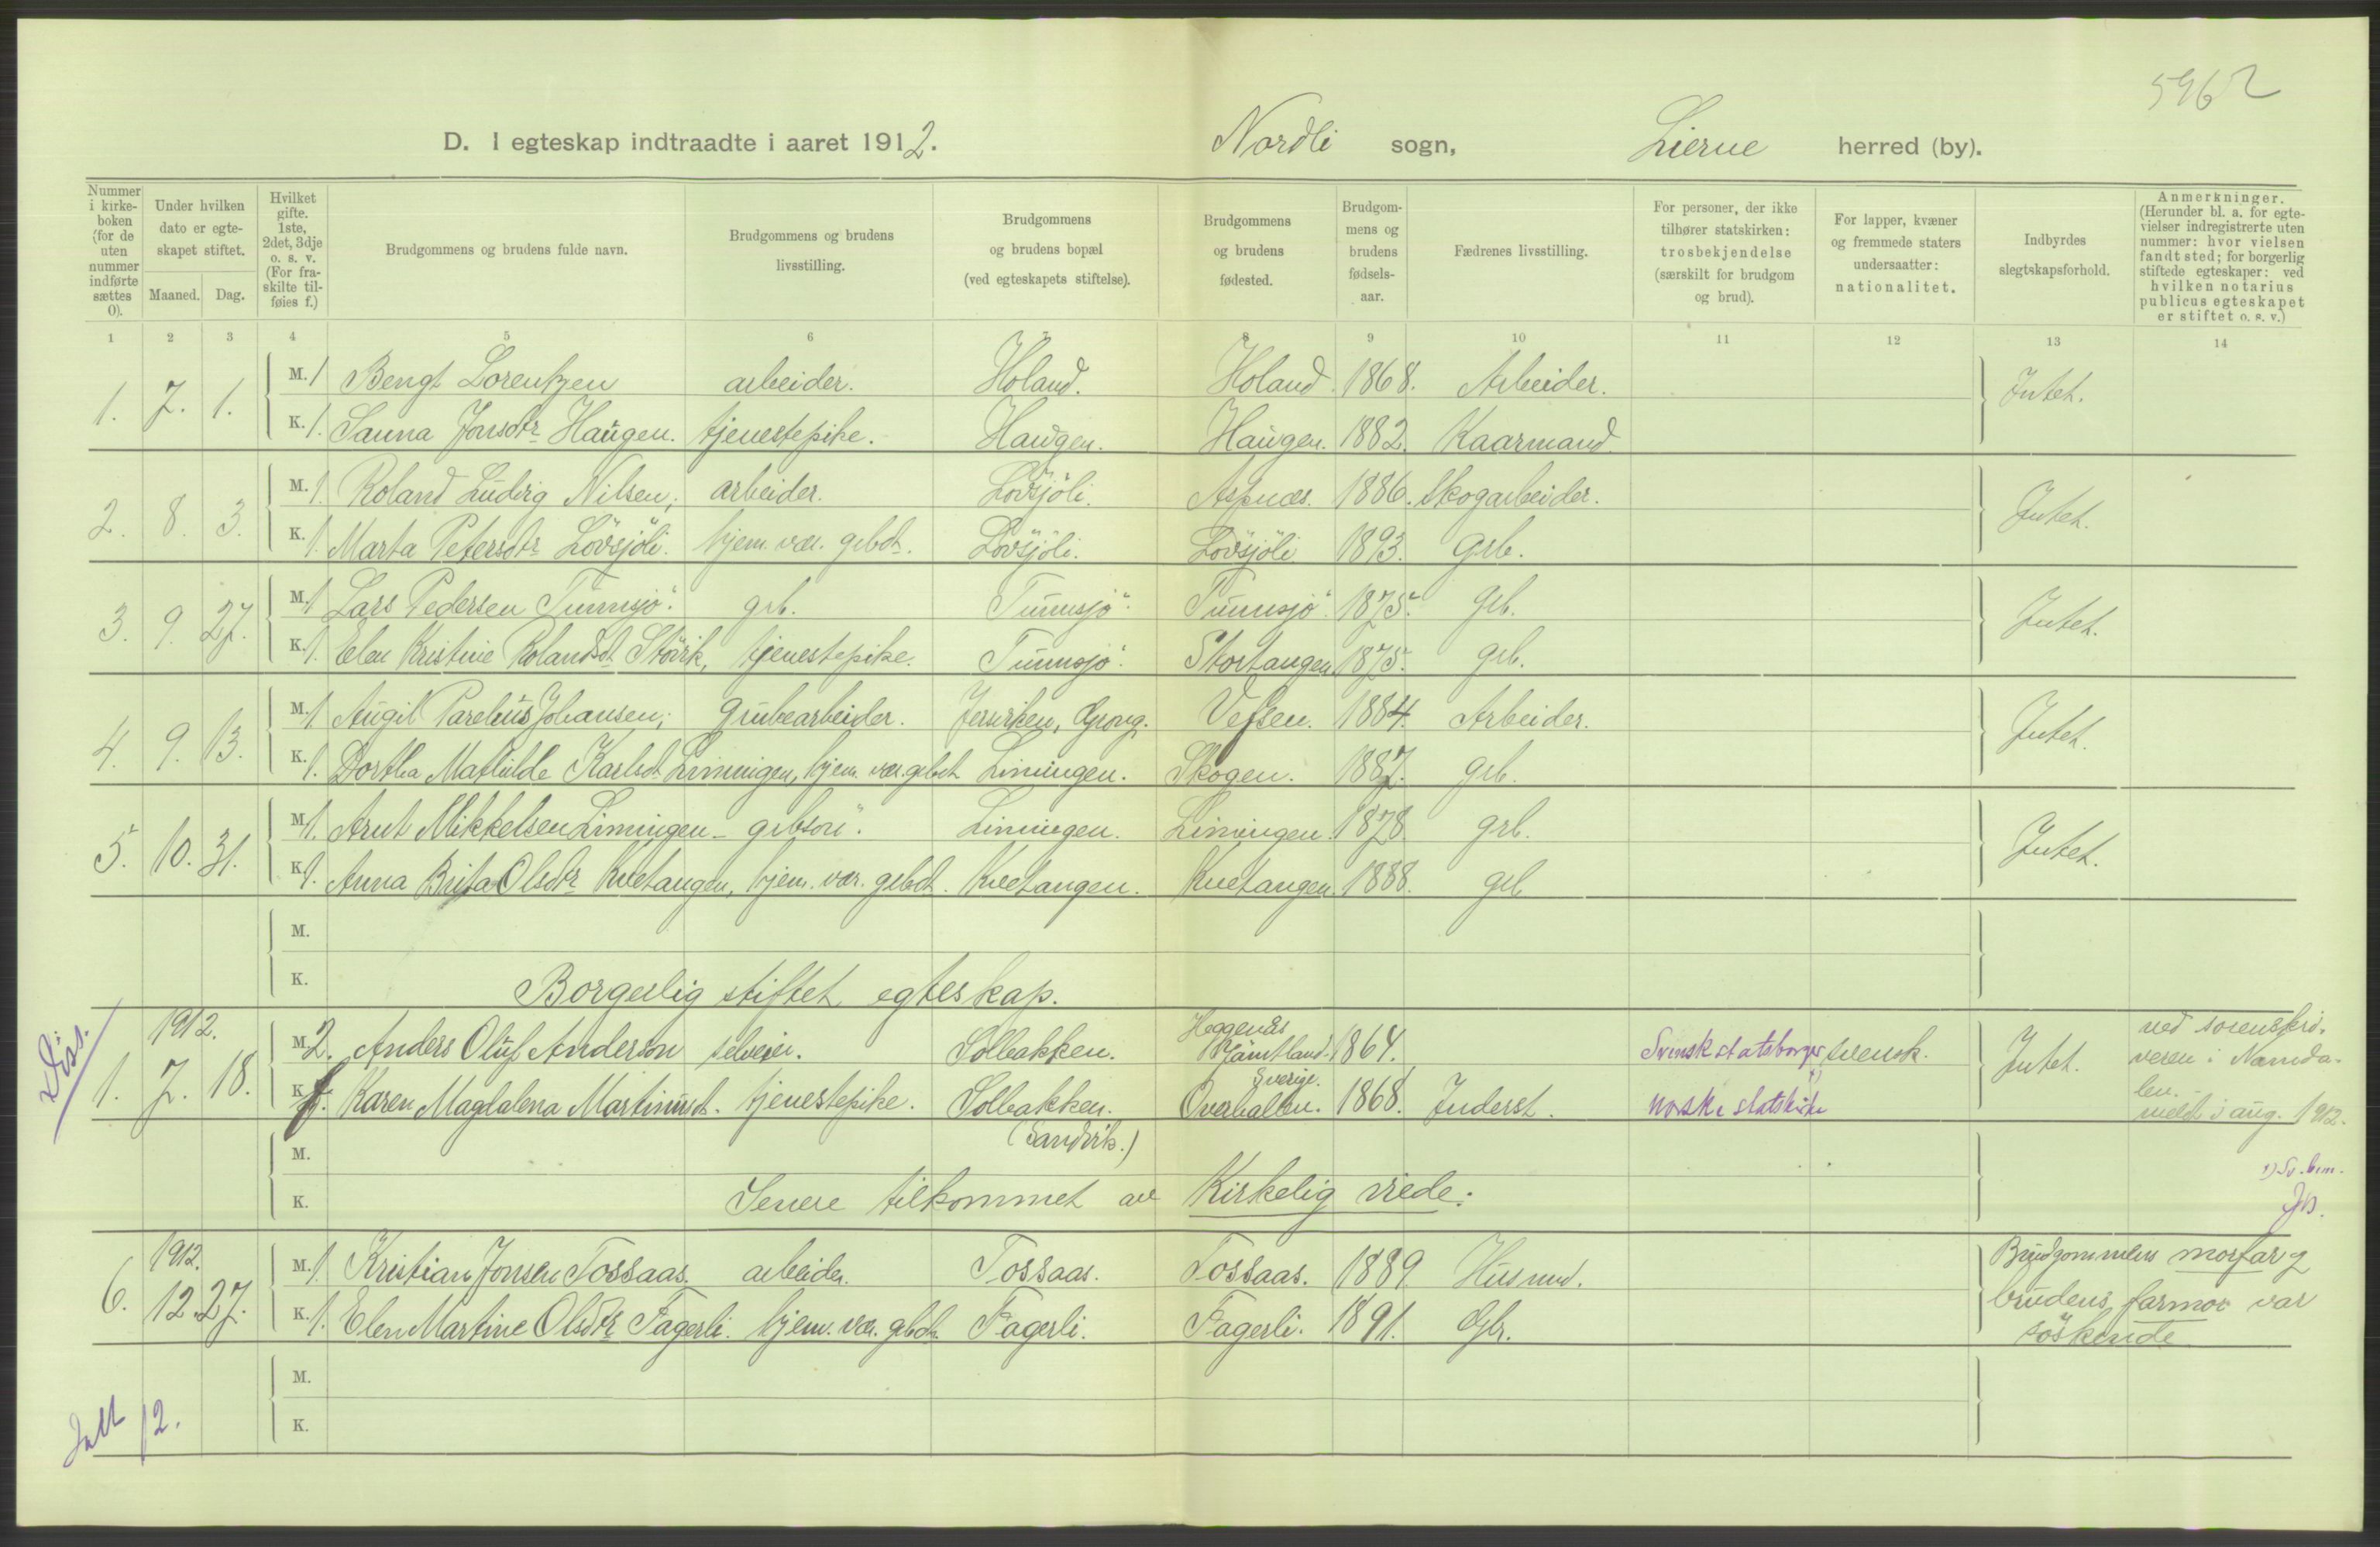 5962
D. I egteskap indtraadte i aaret 1912. Nordli sogn, Lierne herred (by).
Nummer i kirke-boken (for de uten nummer indførte sættes 0).
Under hvilken dato er egte-skapet stiftet.
Maaned. Dag.
Hvilket gifte. 1ste, 2det, 3dje o. s. v. (For fra-skilte til-føies f.)
Brudgommens og brudens fulde navn.
Brudgommens og brudens livsstilling.
Brudgommens og brudens bopæl (ved egteskapets stiftelse).
Brudgommens og brudens fødested.
Brudgom-mens og brudens fødsels-aar.
Fædrenes livsstilling.
For personer, der ikke tilhører statskirken: trosbekjendelse (særskilt for brudgom og brud).
For lapper, kvæner og fremmede staters undersaatter: nationalitet.
Indbyrdes slegtskapsforhold.
Anmerkninger. (Herunder bl. a. for egte-vielser indregistrerte uten nummer: hvor vielsen fandt sted; for borgerlig stiftede egteskaper: ved hvilken notarius publicus egteskapet er stiftet o. s. v.)
1 2 3 4 5 6 7 8 9 10 11 12 13 14
1. 7. 1. M. 1 Bengt Lorentzen arbeider. Holand. Holand. 1868. Arbeider. Intet.
K. 1. Sanna Jonsdtr Haugen. tjenestepike. Haugen. Haugen. 1882. Kaarmand
2. 8. 3. M. 1. Roland Ludvig Nilsen, arbeider. Lövsjöli. Aspnæs. 1886. Skogarbeider. Intet.
K. 1. Marta Petersdtr Lövsjöli. hjem. vær. grbdt. Lövsjöli. Lövsjöli 1893. Grb.
3. 9. 27. M. 1 Lars Pedersen Tunnsjö. grb. Tunnsjö. Tunnsjö. 1875. Grb. Intet.
K. 1. Elen Kristine Rolandsdt Störik, tjenestepike. Tunnsjö. Stortangen 1875. grb.
4. 9. 13. M. 1 Augil Parelius Johansen, Grubearbeider. Grong. Vefsen. 1884. Arbeider. Intet.
K. 1. Dortha Mathilde Karlsdt Limingen, hjem. vær. grbdt Limingen. Skogen. 1887. Grb.
5. 10. 31. M. 1. Arnt Mikkelsen Limingen - grbsön. Limingen. Limingen. 1878. grb. Intet.
K. 1. Anna Brita Olsdtr Kvetangen, hjem. vær. grbdt. Kvetangen. Kvetangen. 1888. grb
M.
K.
Borgerlig stiftet egteskap.
Diss.
1912.
1. 7. 18. M. 2. Anders Oluf Anderson selveier. Solbakken. Heggenås Jämtland. Sverige. 1864. Svensk statsborger svensk. Intet. ved sorenskri-veren i Namda-len. meldt i aug. 1912.
K. f. Karen Magdalena Martinusdt. tjenestepike. Solbakken. (Sandvik.) Overhallen. 1868. Inderst. norske statskirke
M.
K.
1) Sv. bem.
Senere tilkommet av Kirkelig viede:
1912.
6. 12. 27. M. 1. Kristian Jonsen Tossaas. arbeider. Tossaas. Tossaas. 1889. Husmd. Brudgommens morfar og brudens farmor var söskende
K. 1. Elen Martine Olsdtr Fagerli. hjem. vær. grbdt. Fagerli. Fagerli. 1891. Gbr.
M.
K.
Jatt 12.